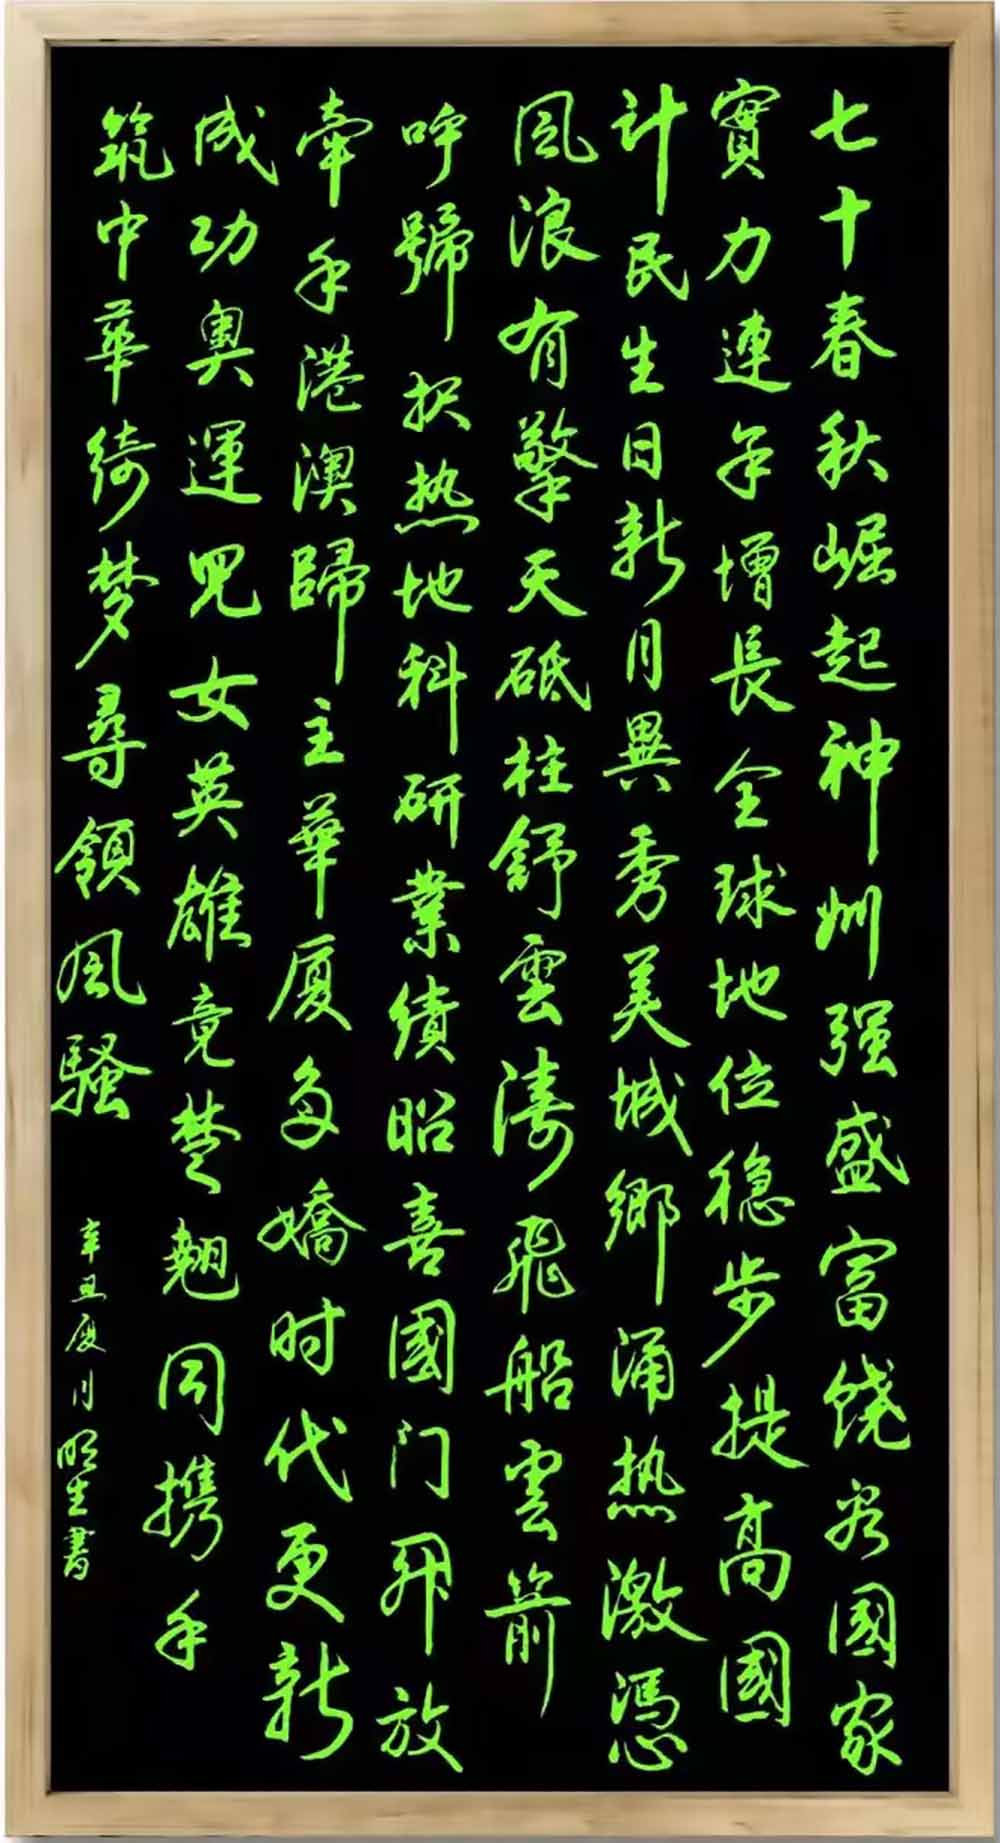 七十春秋崛起神州强盛富饶看國家
實力連年增長全球地位稳步提高國
计民生日新月異秀美城鄉涌热激憑
風浪有擎天砥柱舒雲濤飛船雲箭
呼號択热地科研業績昭喜國门开放
牽手港澳歸主華厦多嬌时代更新
成功奥運児女英雄竟楚翹同携手
筑中華绮梦尋領風騷
辛丑夏月明生書